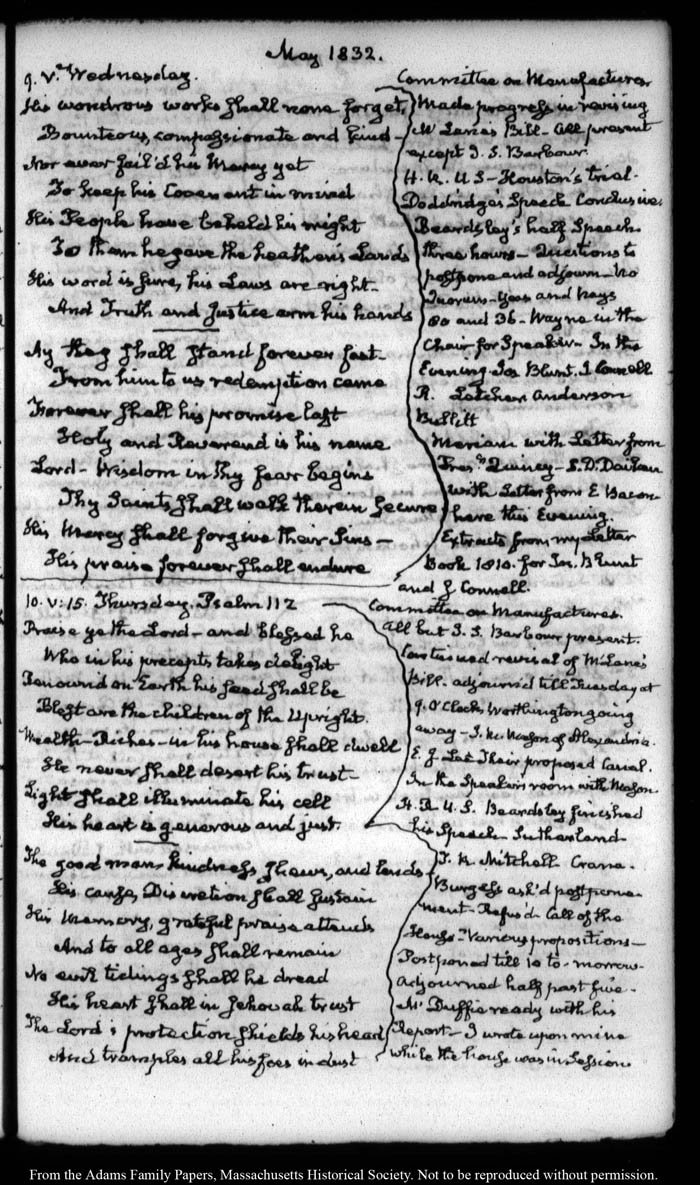 May 1832.
9. V. Wednesday.
His wondrous works shall none forget,
Bounteous, compassionate and kind—
Nor ever fail'd his Mercy yet
To keep his Covenant in mind
His People have beheld his might
To them he gave the heathen's Lands
His word is sure, his Laws are right—
And Truth and Justice arm his hands
Ay they shall stand forever fast—
From him to us redemption came
Forever shall his promise last
Holy and Reverend is his name
Lord— Wisdom in thy fear begins
Thy Saints shall walk therein secure
His Mercy shall forgive their Sins—
His praise forever shall endure
Committee on Manufactures
Made progress in revising
Mr Lane's Bill— All present
except J. S. Barbour.
H. R. U S— Houston's trial.
Doddridge's Speech Conclusive.
Beardsley's half Speech.
three hours— Questions to
postpone and adjourn— No
Quorum— Yeas and Nays
80 and 36— Wayne in the
Chair for Speaker— In the
Evening Jos Blunt. J Connell
R. Letcher Anderson
Bullitt
Meriam with Letter from
Prest Quincy— S. D.
with Letter from E Bacon
here this Evening.
Extracts from my Letter
Book 1810. for Jos. Blunt
and J Connell.
10. V: 15. Thursday. Psalm 112
Praise ye the Lord— and blessed he
Who in his precepts takes delight
Renown'd on Earth his seed shall be
Blest are the children of the Upright.
Wealth— Riches— in his house shall dwell
He never shall desert his trust—
Light shall illuminate his cell
His heart is generous and just.
The good man kindness shews, and lends
His cause, Discretion shall sustain
His Memory, grateful praise attends
And to all ages shall remain
No evil tidings shall he dread
His heart shall in Jehovah trust
The Lord's protection shields his head
And tramples all his foes in dust
Committee on Manufactures.
All but J. S. Barbour present.
Continued revisal of McLane's
Bill. adjourn'd till Tuesday at
9. O'Clock. Worthington going
away— T. Mason of Alexandria.
E. J. Lee Their proposed Canal.
In the Speaker's room with Mason
H. R. U. S. Beardsley finished
his Speech. Sutherland—
T. R. Mitchell Crane.
Burgess ask'd postpone-
ment— Refus'd. Call of the
House— Various propositions—
Postponed till 10 to-morrow—
Adjourned half past five—
Mc Duffie ready with his
Report— I wrote upon mine
while the house was in Session
From the Adams Family Papers, Massachusetts Historical Society. Not to be reproduced without permission.